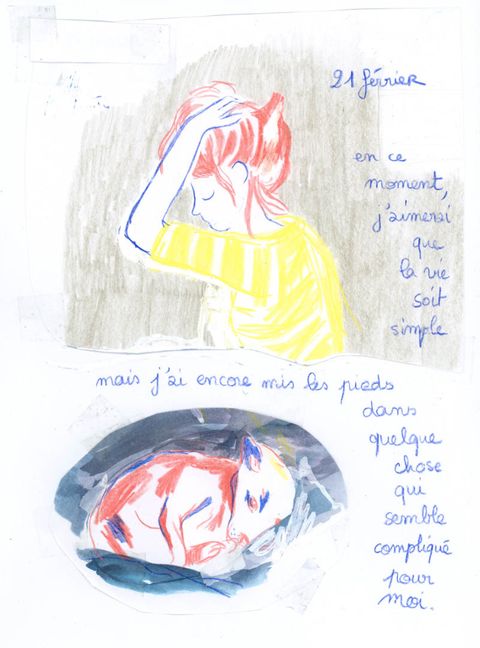 21 février
en ce
moment,
j'aimerai
que
la vie
soit
simple
mais j'ai encore mis les pieds
dans
quelque
chose
qui
semble
compliqué
pour
moi.